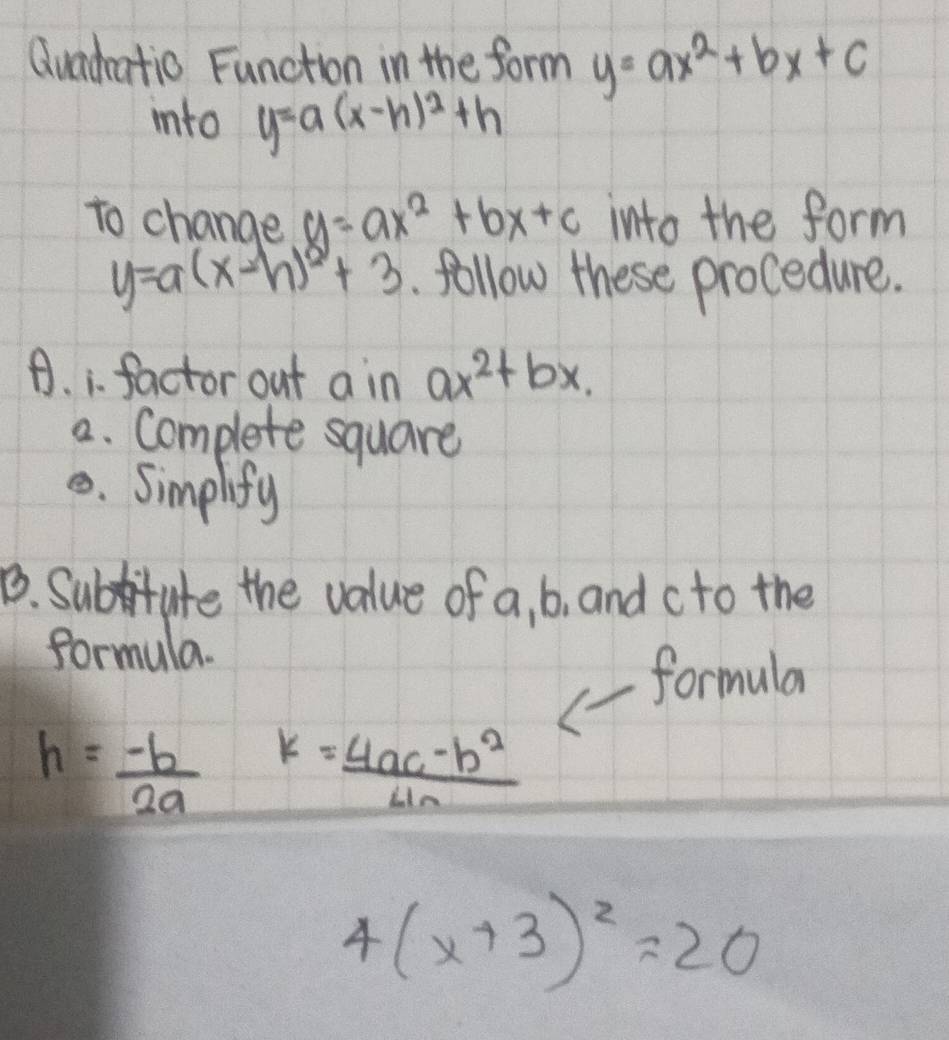 Quadratic Function in the form y=ax²+bx+c
into y=a(x-h)²+h
To change y=ax²+bx+c into the form
y=a(x-h)²+3. follow these procedure.
A. 1. factor out a in ax²+bx.
2. Complete square
3. Simplify
B. Substitute the value of a, b, and c to the
formula.
formula
h = -b/2a k = 4ac-b²/4a
4(x+3)²=20